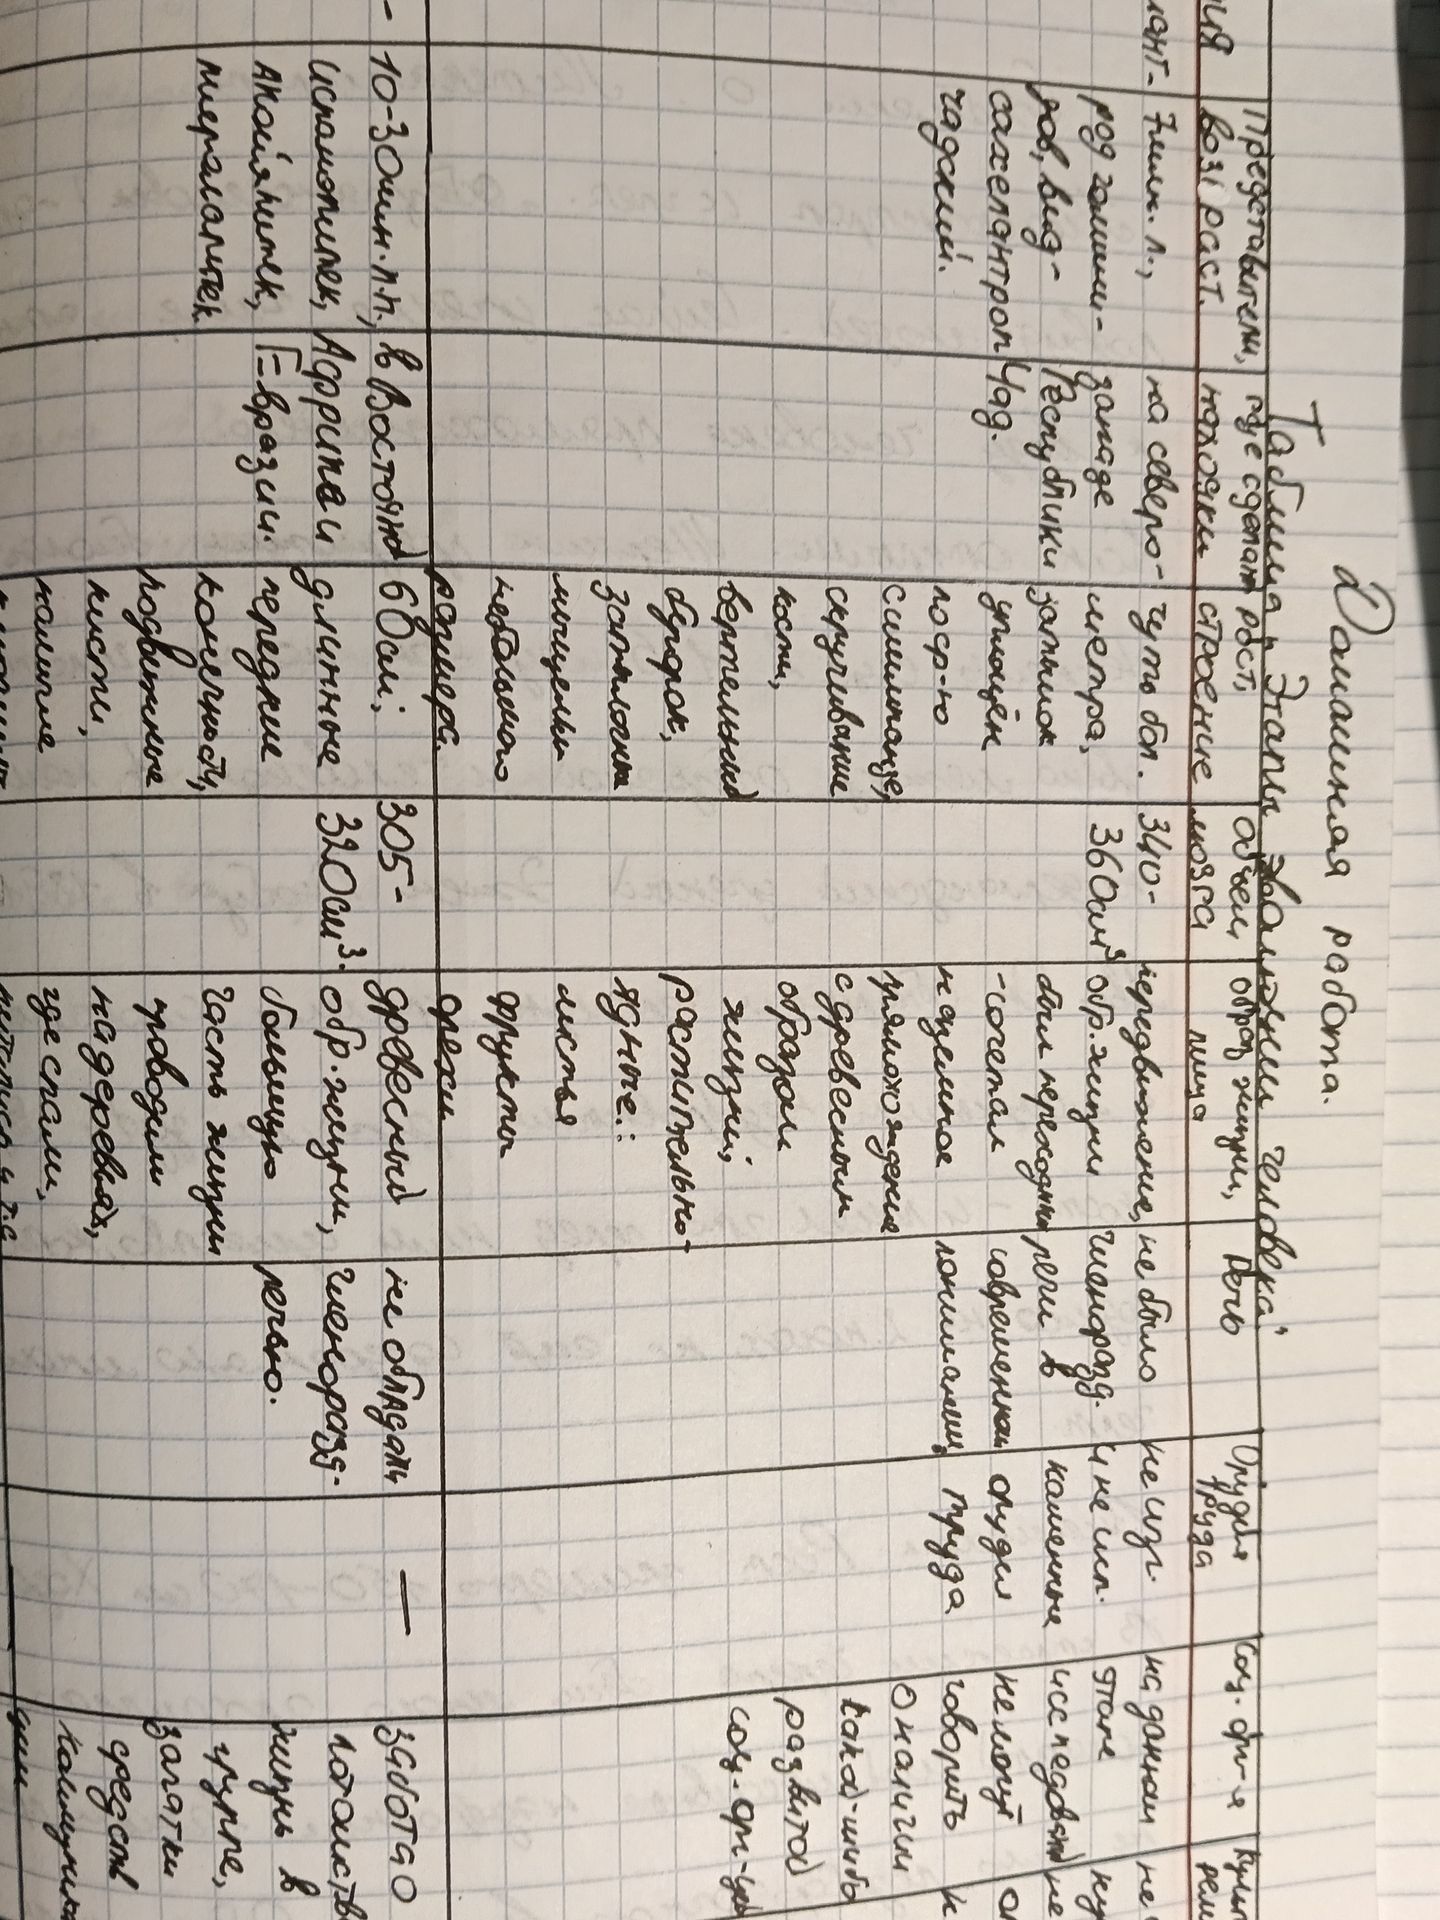 Домашняя работа.
Таблица „Этапы эволюции человека".
Представители,
возр раст.
где сделаны
находки
рост,
строение
объём
мозга
образ жизни,
пища
Речь
Орудия
труда
Соц. орг-я
7 млн. л.,
род гомини-
дов, вид -
сахелантроп
чадский.
на северо-
западе
Республики
Чад.
чуть бол.
метра,
затылок
утощён
скручивание
кости,
вертельный
бугорок,
затылочн
мыщелки
небольшого
размера.
340-
360см³
передвижение,
обр. жизни
был переходным
- сочетал
наземное
прямохождение
с древесным
образом
жизни;
растительно-
ядные.:
листья
фрукты
орехи
не было
членоразд.
речи в
современном
понимании,
не изг.
и не исп.
каменные
орудия
труда
на данном
этапе
исследован
не могут
говорить
о наличии
какой-либо
развитой
соц. орг-ции
10-30 млн. л.н.,
испанопитек,
анойяпитек,
мегалапитек.
в Восточной
Африке и
Евразии.
60см;
длинные
передние
конечности,
подвижные
кисти,
наличие
305-
320см³.
древесный
обр. жизни,
большую
часть жизни
проводили
на деревьях,
где спали,
не обладали
членоразд.
речью.
—
забота о
потомстве
жизнь в
группе,
зачатки
средств